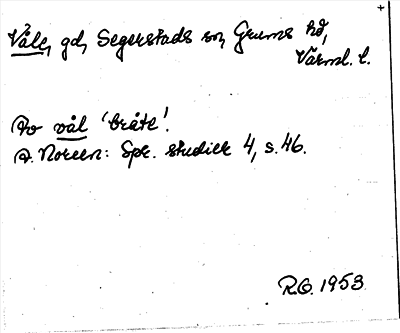 Våle, gd, Segerstads sn, Grums hd,
Värml. l.
Av vål 'bråte'.
A. Noreen: Spr. studier 4, s. 46.
R.G. 1953